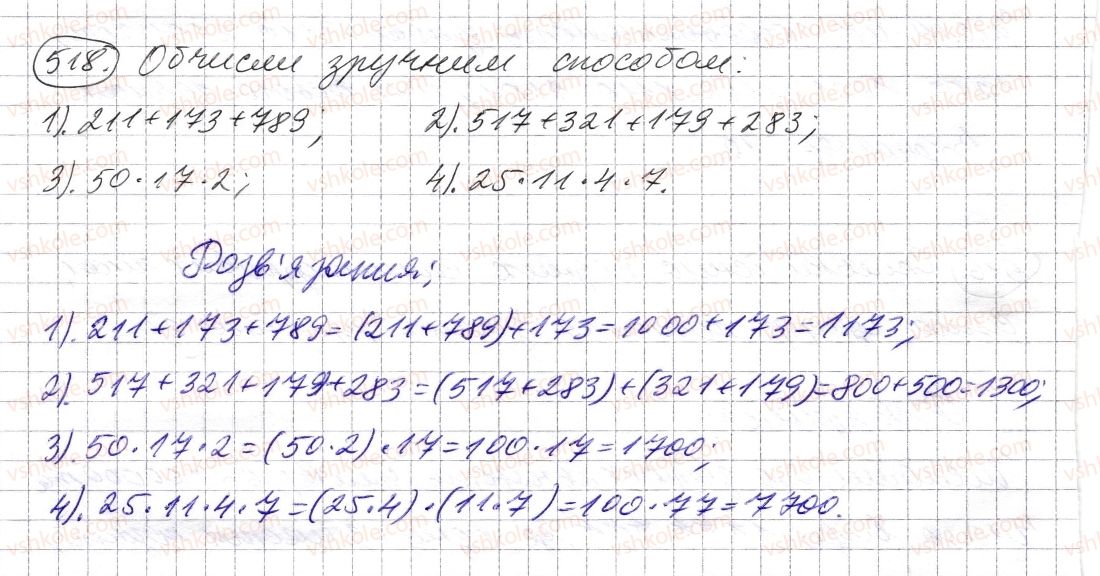 518. Обчисли зручним способом:
1). 211+173+789; 2). 517+321+179+283;
3). 50·17·2; 4). 25·11·4·7.
Розв'язання;
1). 211+173+789=(211+789)+173=1000+173=1173;
2). 517+321+179+283=(517+283)+(321+179)=800+500=1300;
3). 50·17·2=(50·2)·17=100·17=1700;
4). 25·11·4·7=(25·4)·(11·7)=100·77=7700.